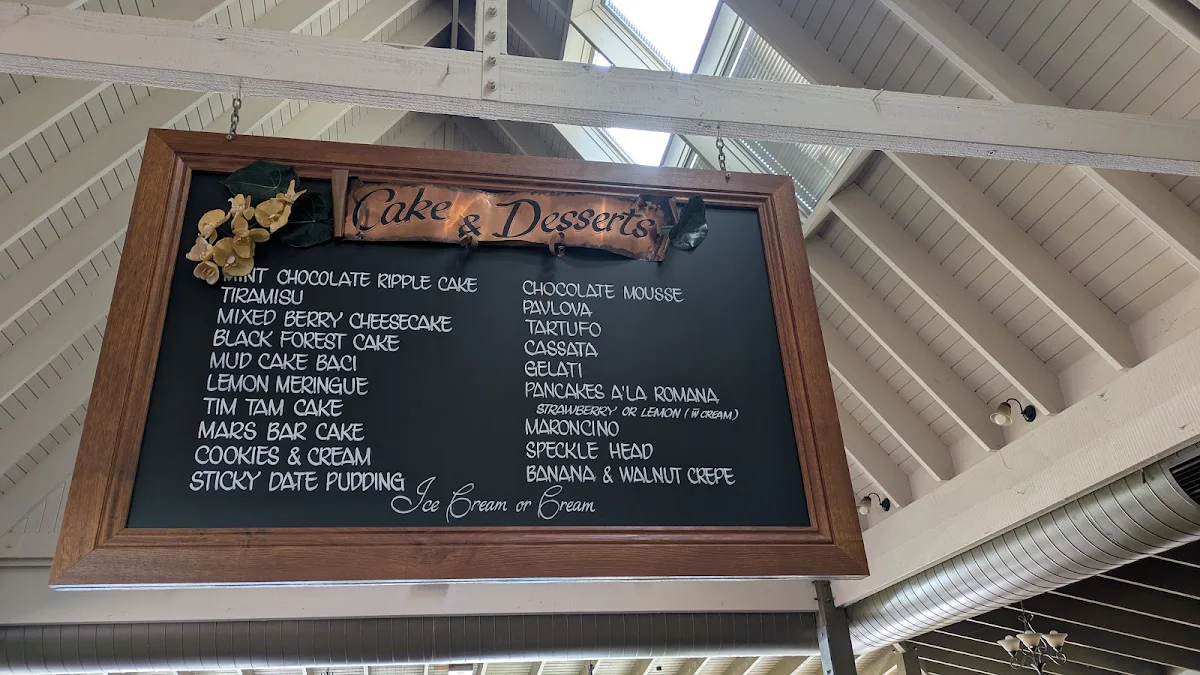 Cake & Desserts
MINT CHOCOLATE RIPPLE CAKE
TIRAMISU
MIXED BERRY CHEESECAKE
BLACK FOREST CAKE
MUD CAKE BACI
LEMON MERINGUE
TIM TAM CAKE
MARS BAR CAKE
COOKIES & CREAM
STICKY DATE PUDDING
CHOCOLATE MOUSSE
PAVLOVA
TARTUFO
CASSATA
GELATI
PANCAKES A'LA ROMANA
STRAWBERRY OR LEMON (W CREAM)
MARONCINO
SPECKLE HEAD
BANANA & WALNUT CREPE
Ice Cream or Cream